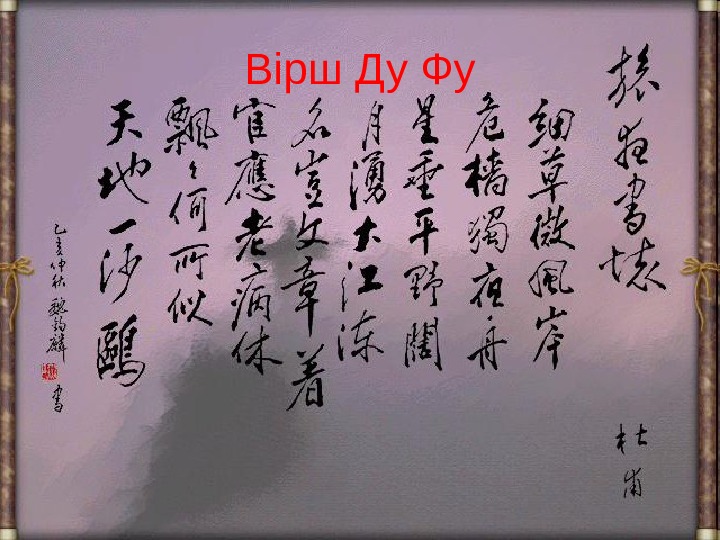 Вірш Ду Фу
旅夜書懷
杜甫
細草微風岸
危檣獨夜舟
星垂平野闊
月湧大江流
名豈文章着
官應老病休
飄〻何所似
天地一沙鷗
己亥仲秋 魏 麟 書